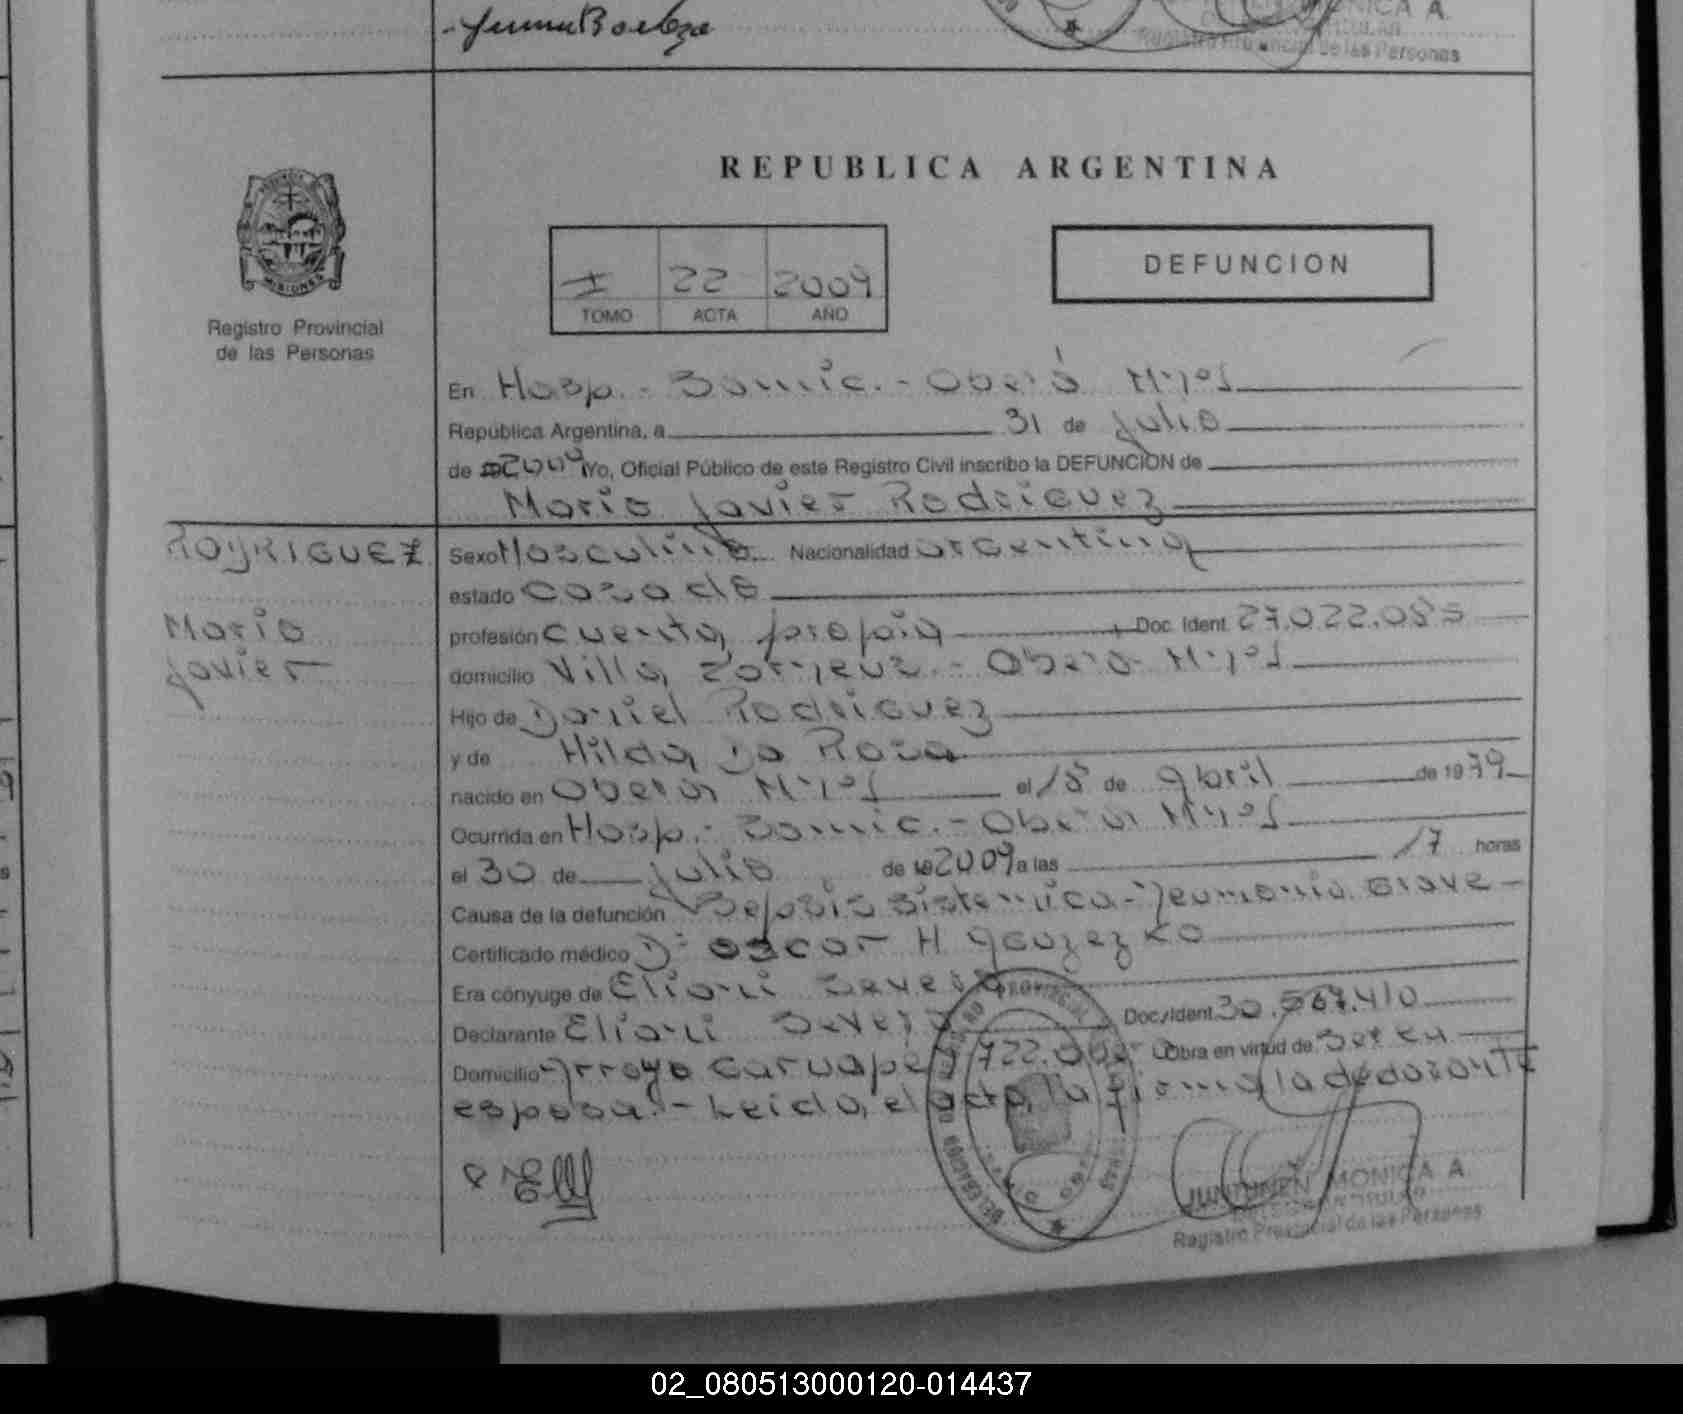 MONICA A.
Registro Provincial de las Personas
REPUBLICA ARGENTINA
MISIONES
Registro Provincial
de las Personas
I 22 2009
TOMO ACTA AÑO
DEFUNCION
En Hosp. Samic. - Oberá Mnes
República Argentina, a 31 de julio
de 2009 Yo, Oficial Público de este Registro Civil inscribo la DEFUNCION de
Mario Javier Rodriguez
RODRIGUEZ
Mario
Javier
Sexo Masculino Nacionalidad argentina
estado casado
profesión cuenta propia Doc. Ident. 27.022.085
domicilio Villa - Oberá - Mnes
Hijo de Daniel Rodriguez
y de Hilda Da Rosa
nacido en Oberá Mnes el 18 de abril de 1979
Ocurrida en Hosp. Samic. - Oberá Mnes
el 30 de julio de 2009 a las 17 horas
Causa de la defunción Sepsis sistemica - Neumonia Grave -
Certificado médico Dr Oscar H.
Era cónyuge de Eliani Severo
Declarante Eliani Severo Doc. Ident. 30.567.410
Domicilio Arroyo Caruape Obra en virtud de ser su
esposa. - Leida, el acta, la firma la declarante
JUNTUNEN MONICA A.
Registro Provincial de las Personas
02_080513000120-014437